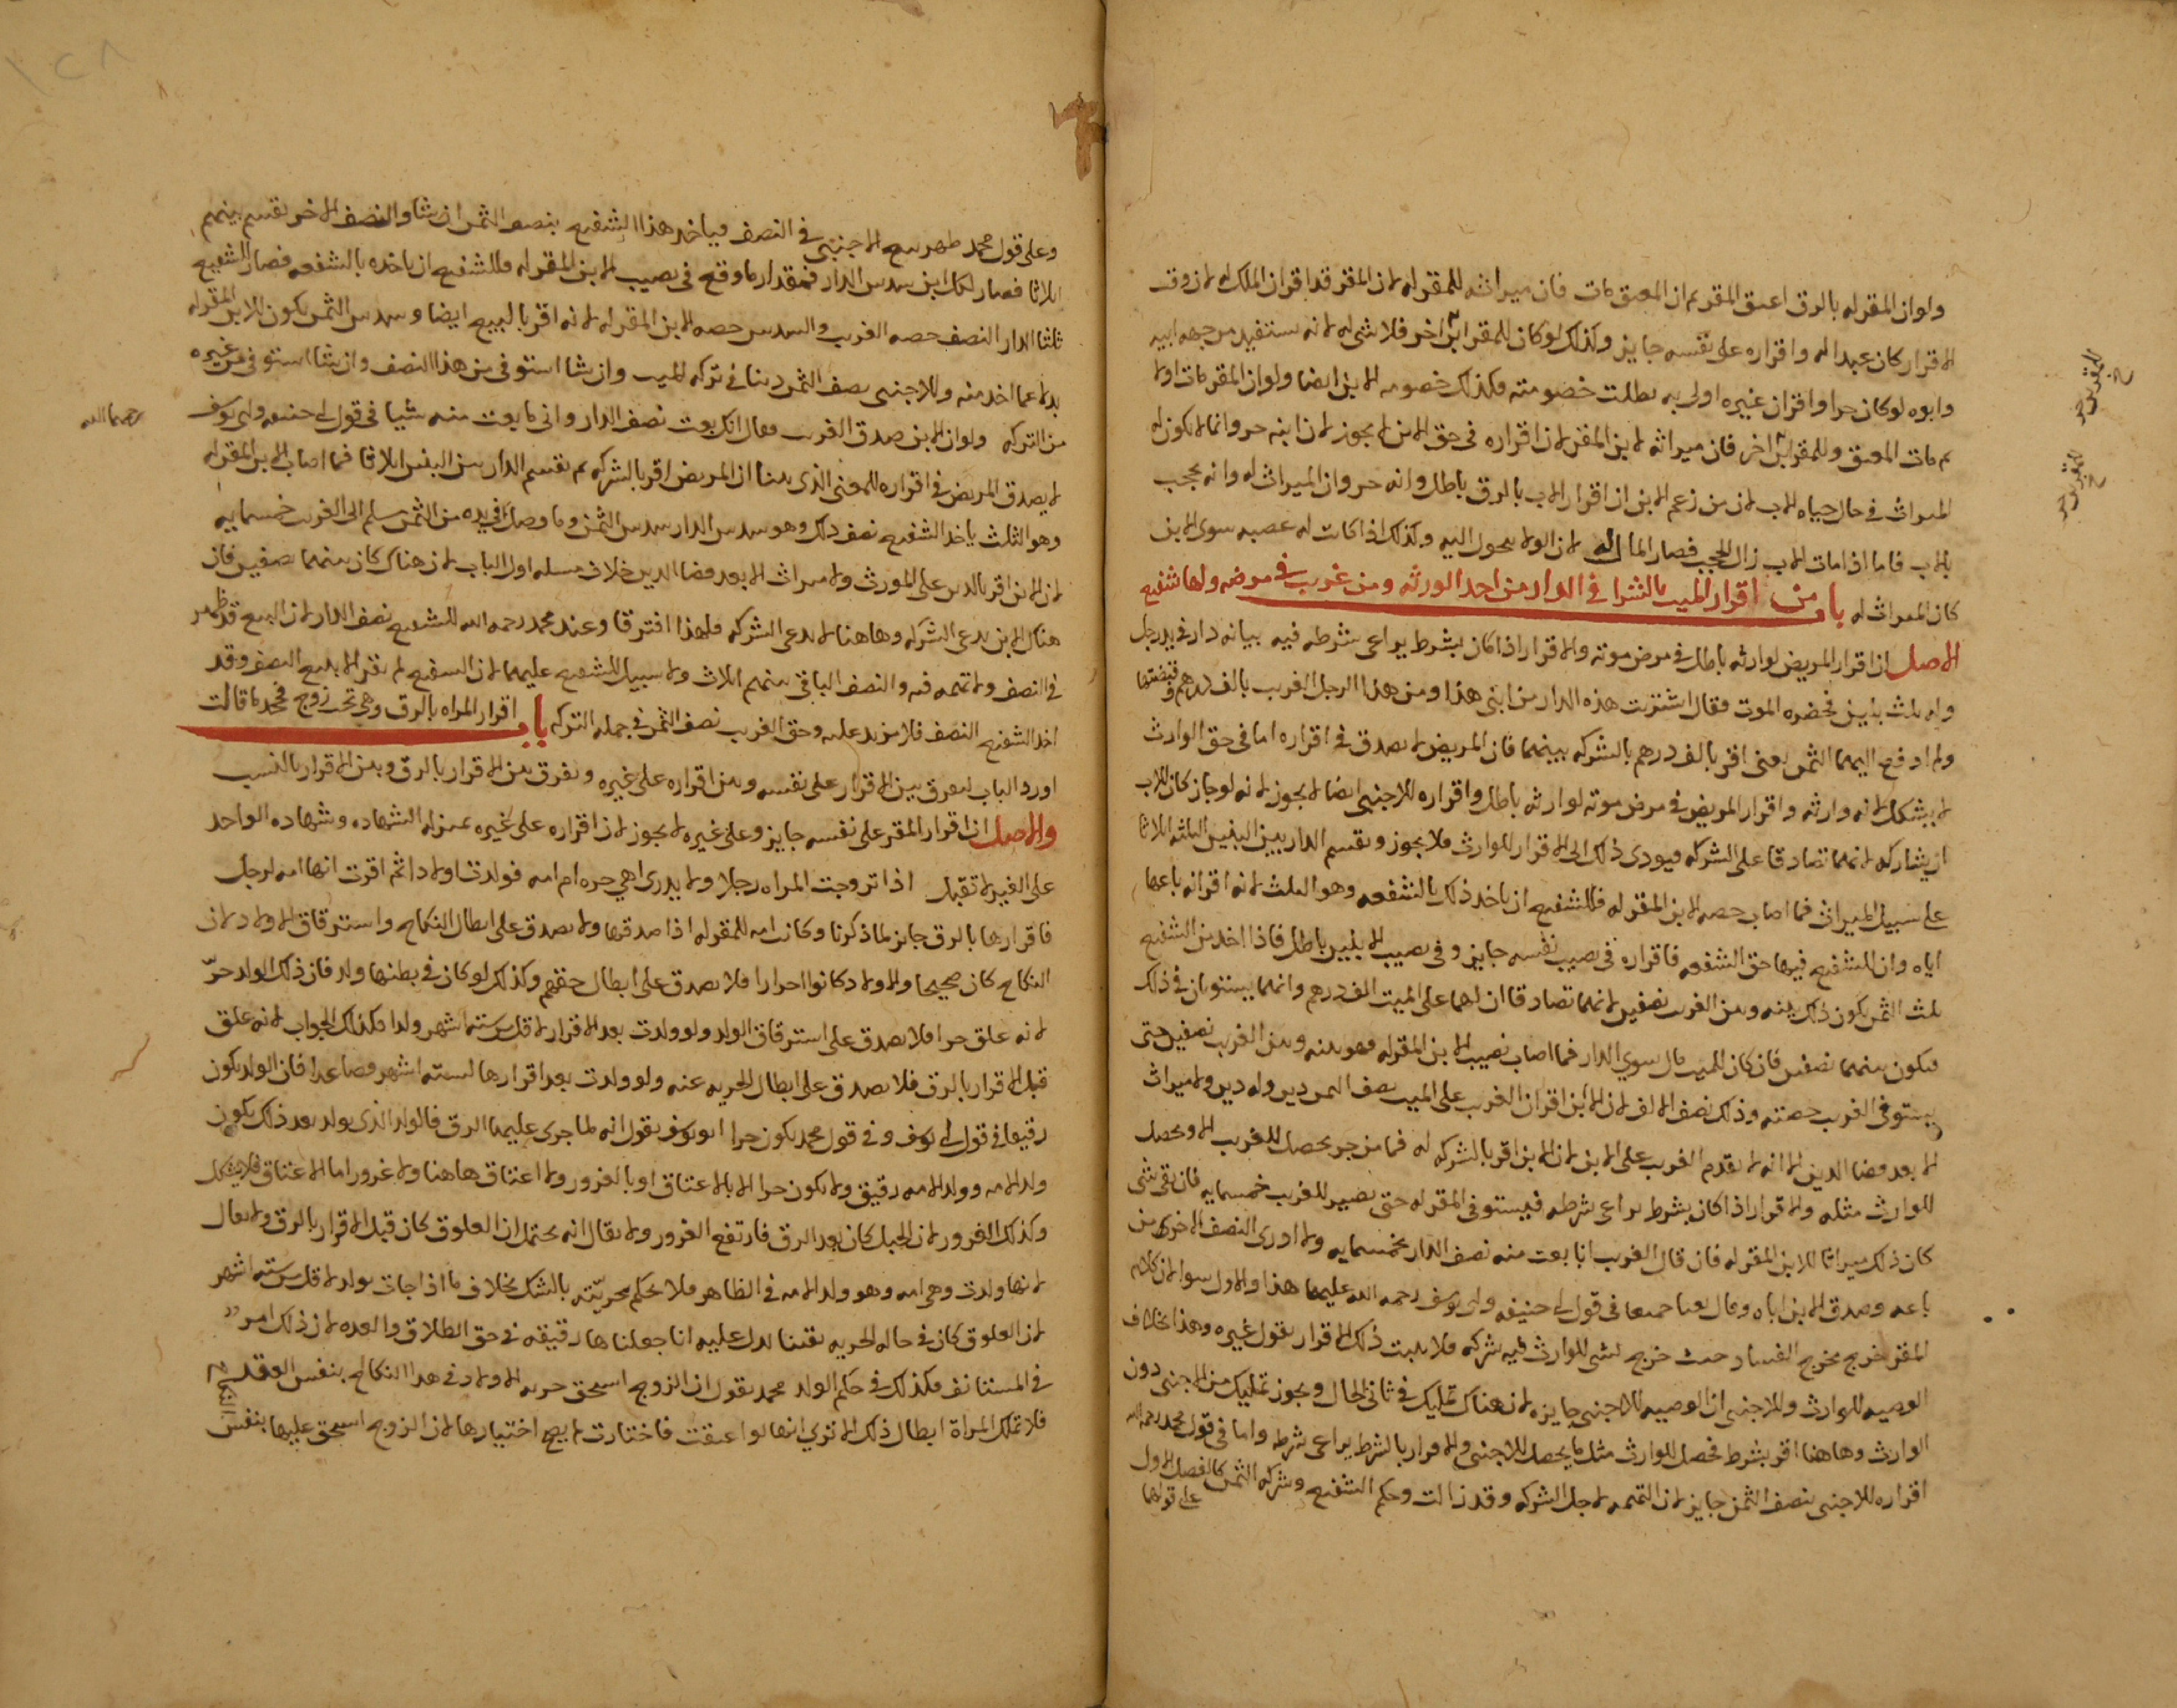 ولو ان المقر له بالرق اعتق المقر ثم ان المعتق مات فان ميراثه للمقر له لان المقر قد اقر ان الملك له لان وقت
الاقرار كان عبدا له واقراره على نفسه جايز وكذلك لو كان للمقر ابن اخر فلا شي له لانه يستفيد من جهة ابيه
وابوه لو كان حرا واقر ان غيره اولى به بطلت خصومته فكذلك خصومه الابن ايضا ولو ان المقر مات اولا
ثم مات المعتق وللمقر ابن اخر فان ميراثه لابن المقر لان اقراره في حق الابن لا يجوز لان ابنه حر وانما لا يكون له
الميراث في حال حياه الاب لان من زعم الابن ان اقرار الاب بالرق باطل وانه حر وان الميراث له وانه يحجب
بالاب فاما اذا مات الاب زال الحجب فصار المال له لان الولا يتحول اليه وكذلك اذا كانت له عصبه سوى الابن
كان الميراث له باب من اقرار الميت بالشرا في الدار من احد الورثه ومن غريب في مرضه ولها شفيع
الاصل ان اقرار المريض لوارثه باطل في مرض موته والاقرار اذا كان بشرط يراعى شرطه فيه بيانه دار في يد رجل
وله ثلث بنين فحضره الموت فقال اشتريت هذه الدار من ابني هذا ومن هذا الرجل الغريب بالف درهم وقبضتها
ولم ادفع اليهما الثمن يعني اقر بالف درهم بالشركه بينهما فان المريض لا يصدق في اقراره اما في حق الوارث
لا يشكل لانه وارثه واقرار المريض في مرض موته لوارثه باطل واقراره للاجنبي ايضا لا يجوز لانه لو جاز كان للاب
ان يشاركه لانهما تصادقا على الشركه فيودي ذلك الى الاقرار للوارث فلا يجوز وتقسم الدار بين البنين الثلثه اثلاثا
على سبيل الميراث فما اصاب حصه الابن المقر له فللشفيع ان ياخذ ذلك بالشفعه وهو الثلث لانه اقر انه باعها
اياه وان للشفيع فيها حق الشفعه فاقراره في نصيب نفسه جايز وفي نصيب الابنين باطل فاذا اخذ من الشفيع
ثلث الثمن يكون ذلك بينه وبين الغريب نصفين لانهما تصادقا ان لهما على الميت الف درهم وانهما يستويان في ذلك
فيكون بينهما نصفين فان كان للميت مال سوى الدار فما اصاب نصيب الابن المقر له فهو بينه وبين الغريب نصفين حتى
يستوفي الغريب حصته وذلك نصف الالف لان الابن اقر ان الغريب على الميت نصف الثمن دين وله دين ولا ميراث
الا بعد قضا الدين الا انه لا يقدم الغريب على الابن لان الابن اقر بالشركه له فما من جز يحصل للغريب الا ويحصل
للوارث مثله والاقرار اذا كان بشرط يراعى شرطه فيستوفي المقر له حتى يصير للغريب خمسمايه فان بقي شي
كان ذلك ميراثا للابن المقر له فان قال الغريب انا بعت منه نصف الدار بخمسمايه ولا ادري النصف الاخر من
باعه وصدق الابن اباه وقال بعنا جميعا في قول ابي حنيفه وابي يوسف رحمه الله عليهما هذا والاول سوا لان كلام
المقر خرج مخرج الفساد حيث خرج لشي للوارث فيه شركه فلا يثبت ذلك الاقرار بقول غيره وهذا بخلاف
الوصيه للوارث وللاجنبي ان الوصيه للاجنبي جايزه لان هناك تمليك في ثاني الحال ويجوز تمليك من الاجنبي دون
الوارث وهاهنا اقر بشرط فحصل للوارث مثل ما يحصل للاجنبي والاقرار بالشرط يراعى شرطه واما في قول محمد رحمه الله
اقراره للاجنبي بنصف الثمن جايز لان التهمه لاجل الشركه وقد زالت وحكم الشفيع وشركه الثمن كالفصل الاول
على قولهما
وعلى قول محمد ظهر بيع الاجنبي في النصف فياخذ هذا الشفيع بنصف الثمن ان شا والنصف الاخر يقسم بينهم
اثلاثا فصار لكل ابن سدس الدار فمقدار ما وقع في نصيب الابن المقر له فللشفيع ان ياخذه بالشفعه فصار للشفيع
ثلثا الدار النصف حصه الغريب والسدس حصه الابن المقر له لانه اقر بالبيع ايضا وسدس الثمن يكون للابن المقر له
بدلا عما اخذ منه وللاجنبي نصف الثمن دينا في تركه الميت وان شا استوفى من هذا النصف وان شا استوفى من غيره
من التركه ولو ان الابن صدق الغريب فقال انك بعت نصف الدار واني ما بعت منه شيا في قول ابي حنيفه وابي يوسف
رحمهما الله
لا يصدق المريض في اقراره للمعنى الذي بينا ان المريض اقر بالشركه ثم تقسم الدار بين البنين اثلاثا فما اصاب الابن المقر له
وهو الثلث ياخذ الشفيع نصف ذلك وهو سدس الدار بسدس الثمن وما وصل في يده من الثمن يسلم الى الغريب خمسمايه
لان الابن اقر بالدين على المورث ولا ميراث الا بعد قضا الدين خلاف مسله اول الباب لان هناك كان بينهما نصفين فان
هناك الابن يدعي الشركه وهاهنا لا يدعي الشركه فلهذا افترقا وعند محمد رحمه الله للشفيع نصف الدار لان البيع قد ظهر
في النصف ولا تهمه فيه والنصف الباقي بينهم اثلاث ولا سبيل للشفيع عليهما لان الشفيع لم يقر الا ببيع النصف وقد
اخذ الشفيع النصف فلا مزيد عليه وحق الغريب نصف الثمن في جمله التركه باب اقرار المراه بالرق وهي تحت زوج فجحد ما قالت
اورد الباب ليفرق بين الاقرار على نفسه وبين اقراره على غيره ويفرق بين الاقرار بالرق وبين الاقرار بالنسب
والاصل ان اقرار المقر على نفسه جايز وعلى غيره لا يجوز لان اقراره على غيره بمنزله الشهاده وشهاده الواحد
على الغير لا تقبل اذا تزوجت المراه رجلا ولا يدرى اهي حره ام امه فولدت اولادا ثم اقرت انها امه لرجل
فاقرارها بالرق جايز لما ذكرنا وكانت امه للمقر له اذا صدقها ولا يصدق على ابطال النكاح واسترقاق الاولاد لان
النكاح كان صحيحا والاولاد كانوا احرارا فلا يصدق على ابطال حقهم وكذلك لو كان في بطنها ولد فان ذلك الولد حر
لانه علق حرا فلا يصدق على استرقاق الولد ولو ولدت بعد الاقرار لاقل من ستة اشهر ولدا فكذلك الجواب لانه علق
قبل الاقرار بالرق فلا يصدق على ابطال الحريه عنه ولو ولدت بعد اقرارها لسته اشهر فصاعدا فان الولد يكون
رقيقا في قول ابي يوسف وفي قول محمد يكون حرا ابو يوسف يقول انه لما جرى عليهما الرق فالولد الذي يولد بعد ذلك يكون
ولد الامه وولد الامه رقيق ولا يكون حرا الا بالاعتاق او بالغرور ولا اعتاق هاهنا ولا غرور اما الاعتاق فلا يشكل
وكذلك الغرور لان الحبل كان بعد الرق فارتفع الغرور ولا يقال انه يحتمل ان العلوق كان قبل الاقرار بالرق ولا يقال
لانها ولدت وهي امه وهو ولد الامه في الظاهر فلا يحكم بحريته بالشك بخلاف ما اذا جات بولد لاقل من سته اشهر
لان العلوق كان في حاله الحريه يقينا يدل عليه انا جعلناها رقيقه في حق الطلاق والعده لان ذلك امر
في المستانف فكذلك في حكم الولد محمد يقول ان الزوج استحق حريه الاولاد في هذا النكاح بنفس العقد
فلا تملك المراة ابطال ذلك الا ترى انها لو اعتقت فاختارت لا يصح اختيارها لان الزوج استحق عليها بنفس
النكاح